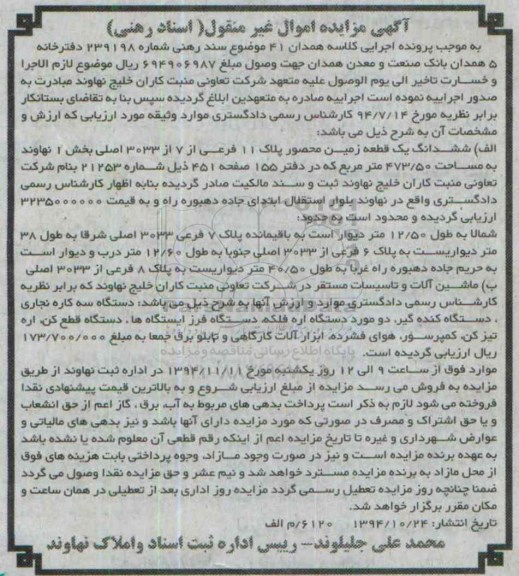 آگهی مزایده اموال غیر منقول( اسناد رهنی)
به موجب پرونده اجرایی کلاسه همدان ۴۱ موضوع سند رهنی شماره ۲۳۹۱۹۸ دفترخانه
۵ همدان بانک صنعت و معدن همدان جهت وصول مبلغ ۶۹۴۹۰۶۹۸۷ ریال موضوع لازم الاجرا
و خسارت تاخیر الی یوم الوصول علیه متعهد شرکت تعاونی منبت کاران خلیج نهاوند مبادرت به
صدور اجراییه نموده است اجراییه صادره به متعهدین ابلاغ گردیده سپس بنا به تقاضای بستانکار
برابر نظریه مورخ ۹۴/۷/۱۴ کارشناس رسمی دادگستری موارد وثیقه مورد ارزیابی که ارزش و
مشخصات آن به شرح ذیل می باشد:
الف) ششدانگ یک قطعه زمین محصور پلاک ۱۱ فرعی از ۷ از ۳۰۳۳ اصلی بخش ۱ نهاوند
به مساحت ۴۷۳/۵۰ متر مربع که در دفتر ۱۵۵ صفحه ۴۵۱ ذیل شماره ۲۱۲۵۳ بنام شرکت
تعاونی منبت کاران خلیج نهاوند ثبت و سند مالکیت صادر گردیده بنابه اظهار کارشناس رسمی
دادگستری واقع در نهاوند بلوار استقلال ابتدای جاده دهبوره راه و به قیمت ۳۲۳۵۰۰۰۰۰۰
ارزیابی گردیده و محدود است به حدود:
شمالا به طول ۱۲/۵۰ متر دیوار است به باقیمانده پلاک ۷ فرعی ۳۰۳۳ اصلی شرقا به طول ۳۸
متر دیواریست به پلاک ۶ فرعی از ۳۰۳۳ اصلی جنوبا به طول ۱۲/۶۰ متر درب و دیوار است
به حریم جاده دهبوره راه غربا به طول ۴۰/۵۰ متر دیواریست به پلاک ۸ فرعی از ۳۰۳۳ اصلی
ب) ماشین آلات و تاسیسات مستقر در شرکت تعاونی منبت کاران خلیج نهاوند که برابر نظریه
کارشناس رسمی دادگستری موارد و ارزش آنها به شرح ذیل می باشد: دستگاه سه کاره نجاری
، دستگاه کنده گیر، دو مورد دستگاه اره فلکه، دستگاه فرز ایستگاه ها ، دستگاه قطع کن، اره
تیز کن، کمپرسور، هوای فشرده، ابزار آلات کارگاهی و تابلو برق جمعا به مبلغ ۱۷۳/۷۰۰/۰۰۰
ریال ارزیابی گردیده است.
موارد فوق از ساعت ۹ الی ۱۲ روز یکشنبه مورخ ۱۳۹۴/۱۱/۱۱ در اداره ثبت نهاوند از طریق
مزایده به فروش می رسد مزایده از مبلغ ارزیابی شروع و به بالاترین قیمت پیشنهادی نقدا
فروخته می شود لازم به ذکر است پرداخت بدهی های مربوط به آب، برق ، گاز اعم از حق انشعاب
و یا حق اشتراک و مصرف در صورتی که مورد مزایده دارای آنها باشد و نیز بدهی های مالیاتی و
عوارض شهرداری و غیره تا تاریخ مزایده اعم از اینکه رقم قطعی آن معلوم شده یا نشده باشد
به عهده برنده مزایده است و نیز در صورت وجود مازاد، وجوه پرداختی بابت هزینه های فوق
از محل مازاد به برنده مزایده مسترد خواهد شد و نیم عشر و حق مزایده نقدا وصول می گردد
ضمنا چنانچه روز مزایده تعطیل رسمی گردد مزایده روز اداری بعد از تعطیلی در همان ساعت و
مکان مقرر برگزار خواهد شد.
تاریخ انتشار: ۱۳۹۴/۱۰/۲۴ ۶۱۲۰/م الف
محمد علی جلیلوند- رییس اداره ثبت اسناد واملاک نهاوند
پایگاه اطلاع رسانی مناقصه و مزایده